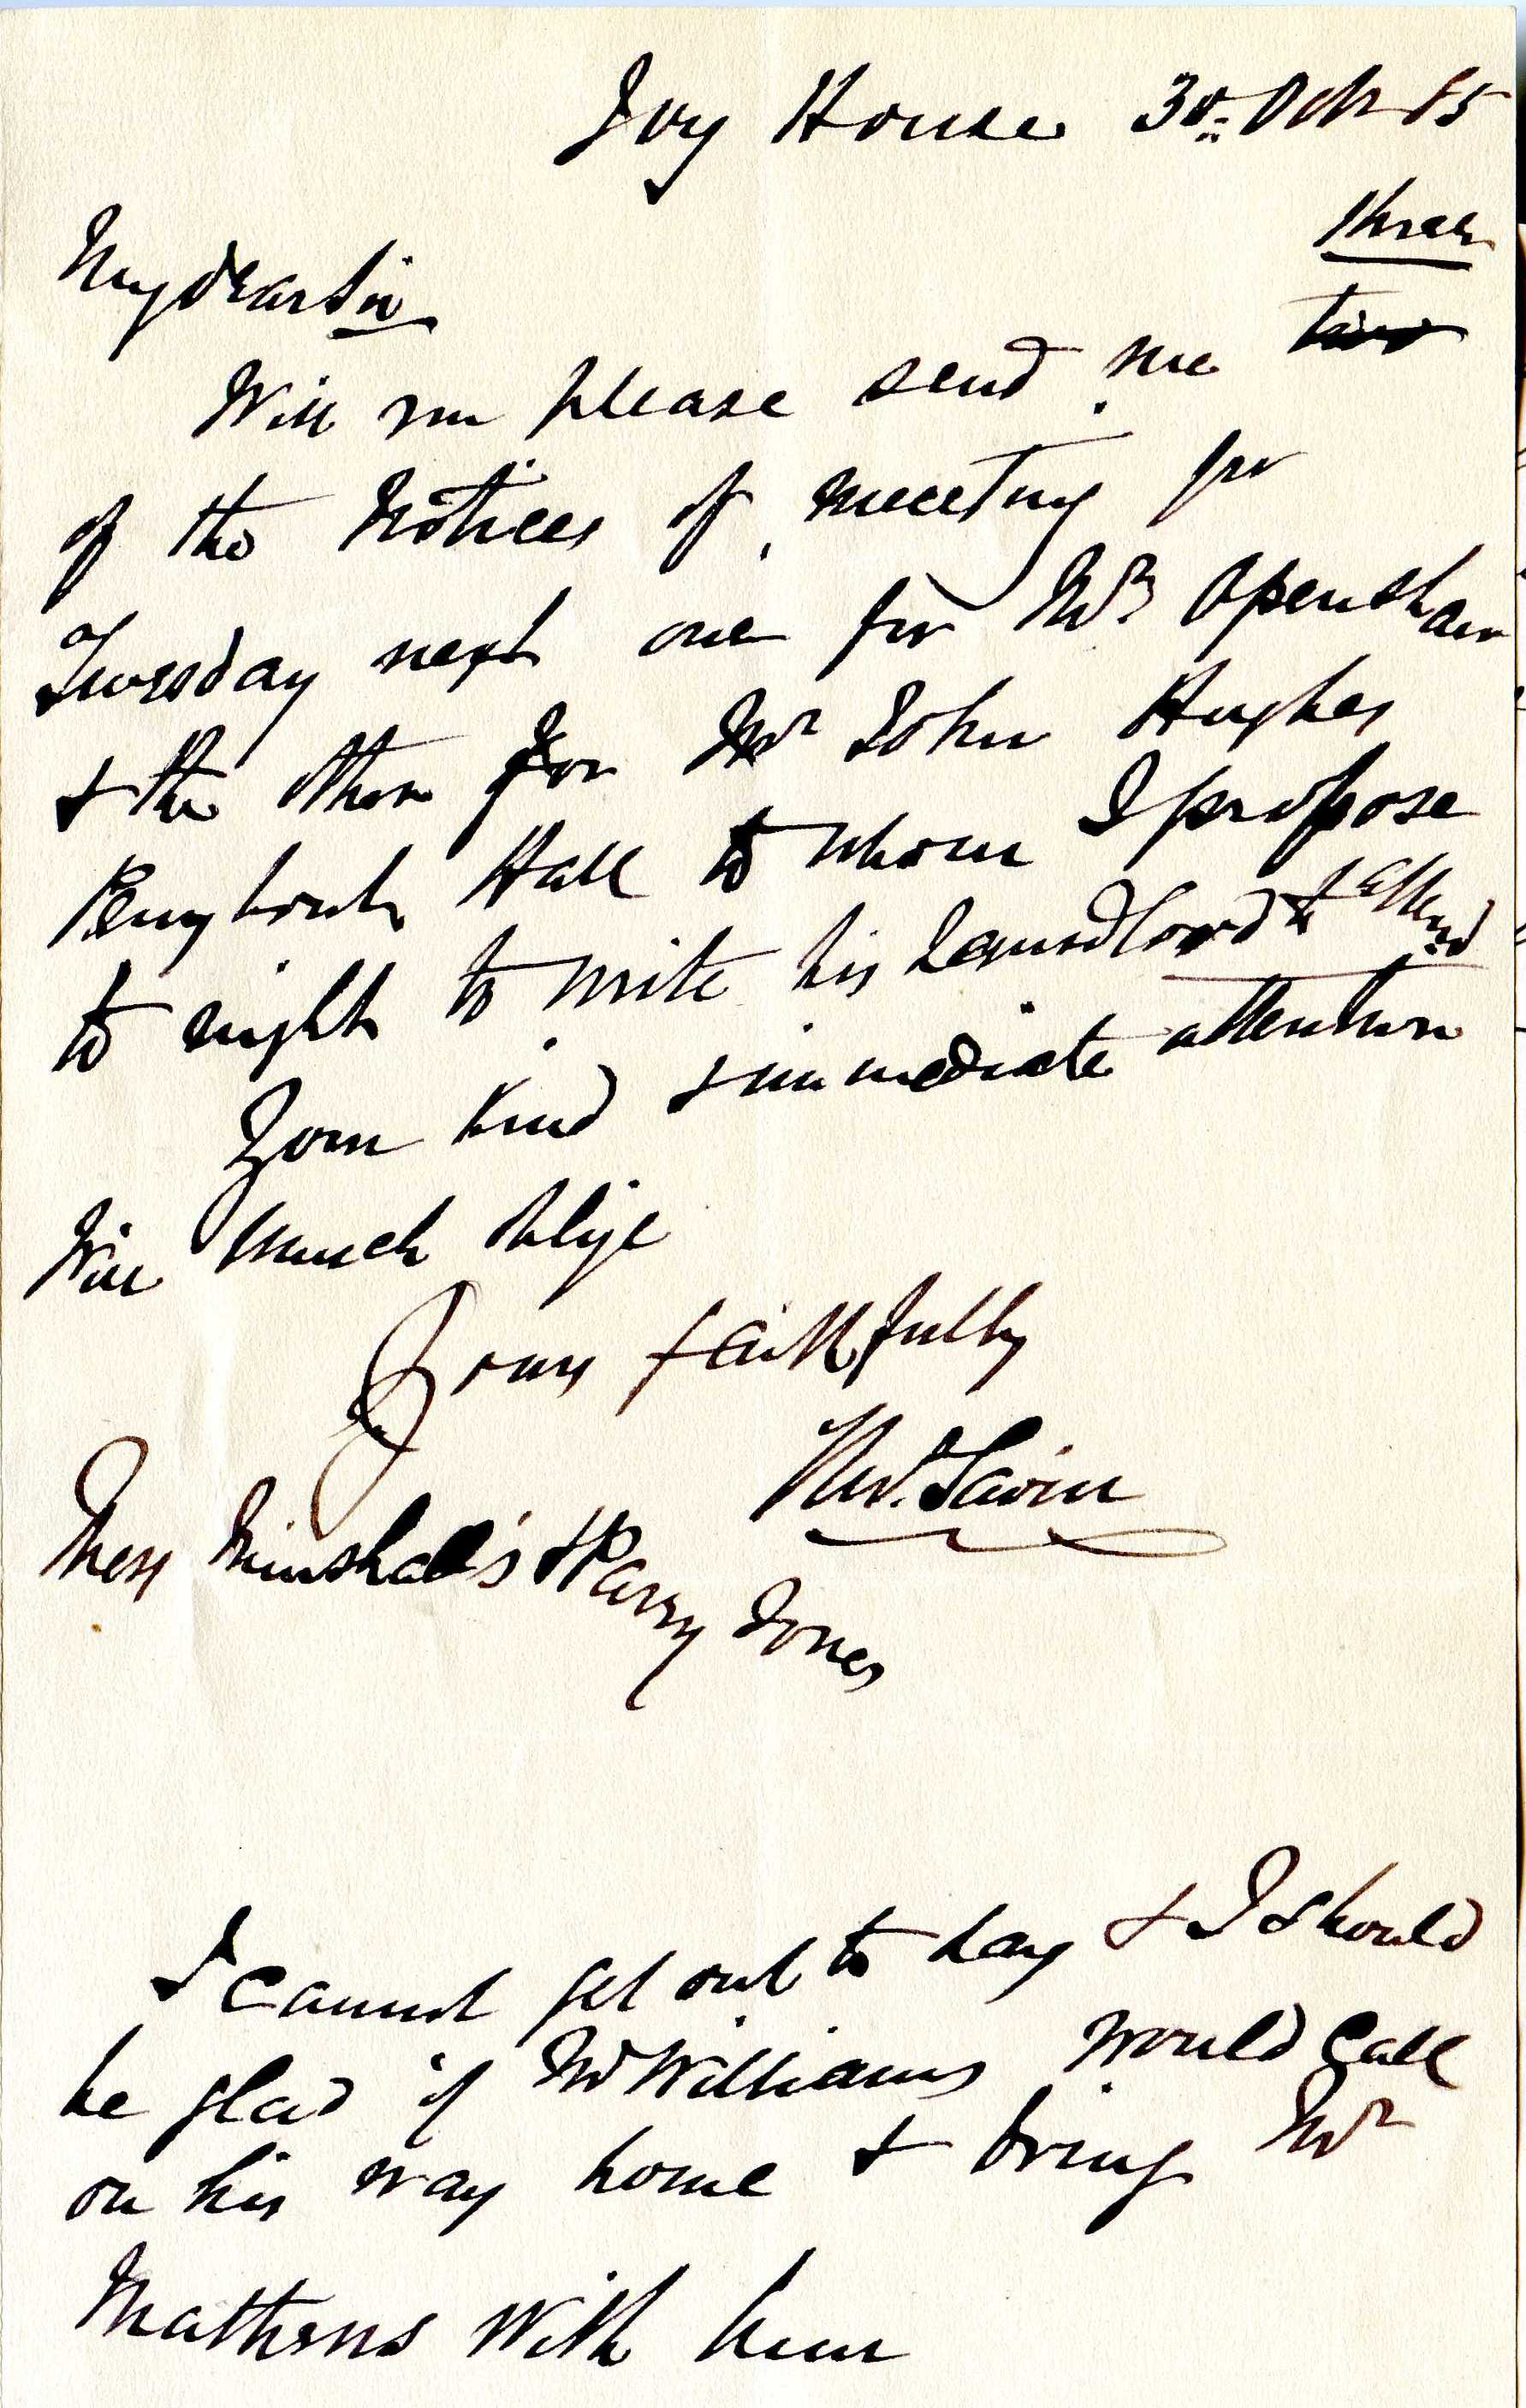 Ivy House 30: Oct 85
My dear Sir
three
Will you please send me two
of the Notices of meeting for
Tuesday next one for Mr Openshaw
& the other for Mr John Hughes
Hall to whom I propose
to night to write his Landlord to attend
Your kind & immediate attention
Will much oblige
Yours faithfully
Savin
Mess Minshall's & Parry Jones
I cannot get out to day & I should
be glad if Mr Williams would call
on his way home & bring Mr
Mathews with him